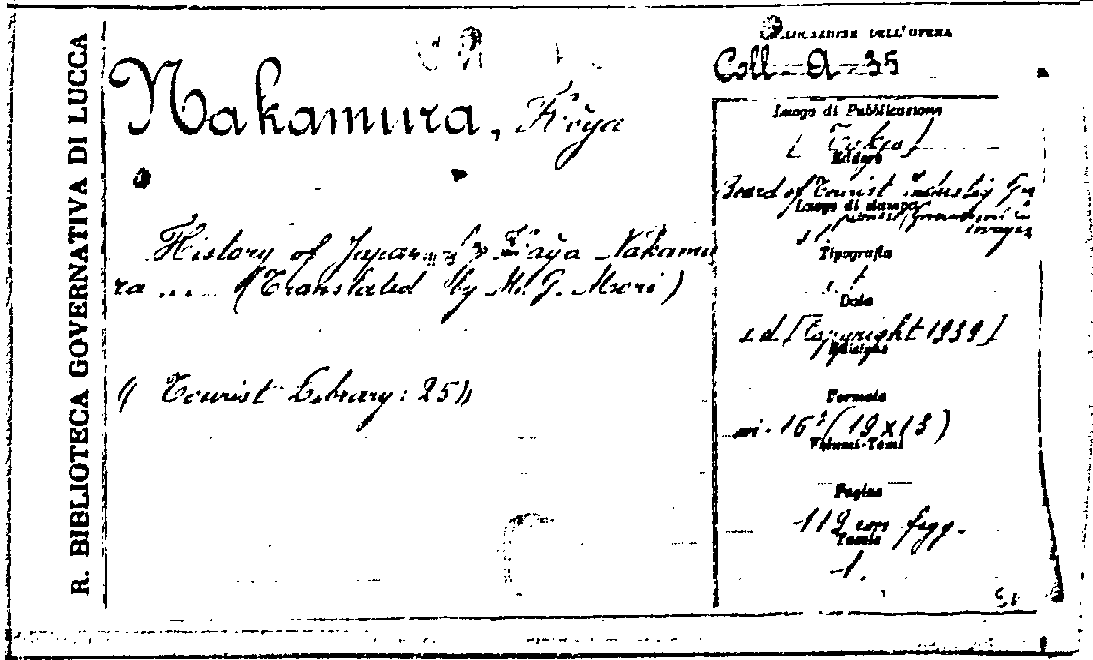 R. BIBLIOTECA GOVERNATIVA DI LUCCA
Nakamura, Kōya
History of Japan by Kōya Nakamu
ra .... (Translated by M. G. Mori)
(( Tourist Library: 25))
DELL'OPERA
Coll - A - 35
Luogo di Pubblicazione
[Tokyo]
Editore
Board of Tourist Industry
Luogo di stampa
Tipografia
Data
s.d. [Copyright 1939]
Formato
16° (19 x 13)
Volumi-Tomi
Pagine
112 con figg.
Tavole
1.